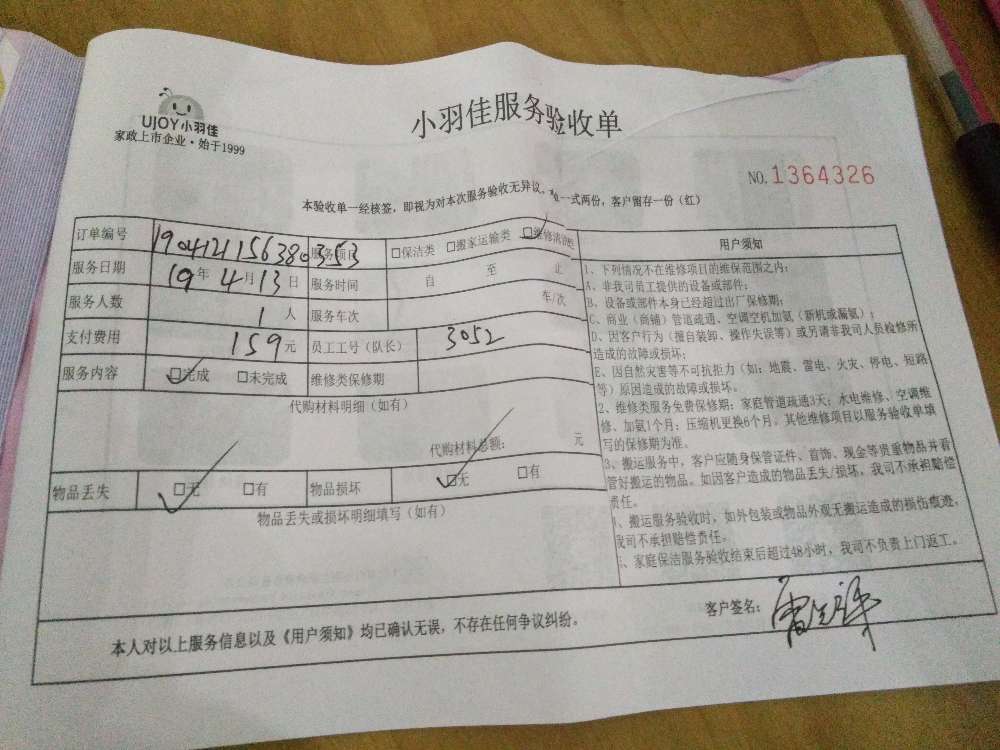 UJOY小羽佳
家政上市企业·始于1999
小羽佳服务验收单
NO.1364326
本验收单一经核签，即视为对本次服务验收无异议。一式两份，客户留存一份（红）
订单编号 190412156380353 服务项目 □保洁类 □搬家运输类
服务日期 19年4月13日 服务时间 自 至 止
服务人数 1人 服务车次 车/次
支付费用 159元 员工工号（队长） 3052
服务内容 □完成 □未完成 维修类保修期
代购材料明细（如有）
代购材料总额： 元
物品丢失 □无 □有 物品损坏 □无 □有
物品丢失或损坏明细填写（如有）
用户须知
1、下列情况不在维修项目的维保范围之内：
A、非我司员工提供的设备或部件；
B、设备或部件本身已经超过出厂保修期；
C、商业（商铺）管道疏通、空调空机加氨（新机或漏氨）；
D、因客户行为（擅自装卸、操作失误等）或另请非我司人员检修所
造成的故障或损坏；
E、因自然灾害等不可抗拒力（如：地震、雷电、火灾、停电、短路
等）原因造成的故障或损坏。
2、维修类服务免费保修期：家庭管道疏通3天；水电维修、空调维
修、加氨1个月；压缩机更换6个月。其他维修项目以服务验收单填
写的保修期为准。
3、搬运服务中，客户应随身保管证件、首饰、现金等贵重物品并看
管好搬运的物品。如因客户造成的物品丢失/损坏，我司不承担赔偿
责任。
、搬运服务验收时，如外包装或物品外观无搬运造成的损伤痕迹，
我司不承担赔偿责任。
、家庭保洁服务验收结束后超过48小时，我司不负责上门返工。
本人对以上服务信息以及《用户须知》均已确认无误，不存在任何争议纠纷。
客户签名：